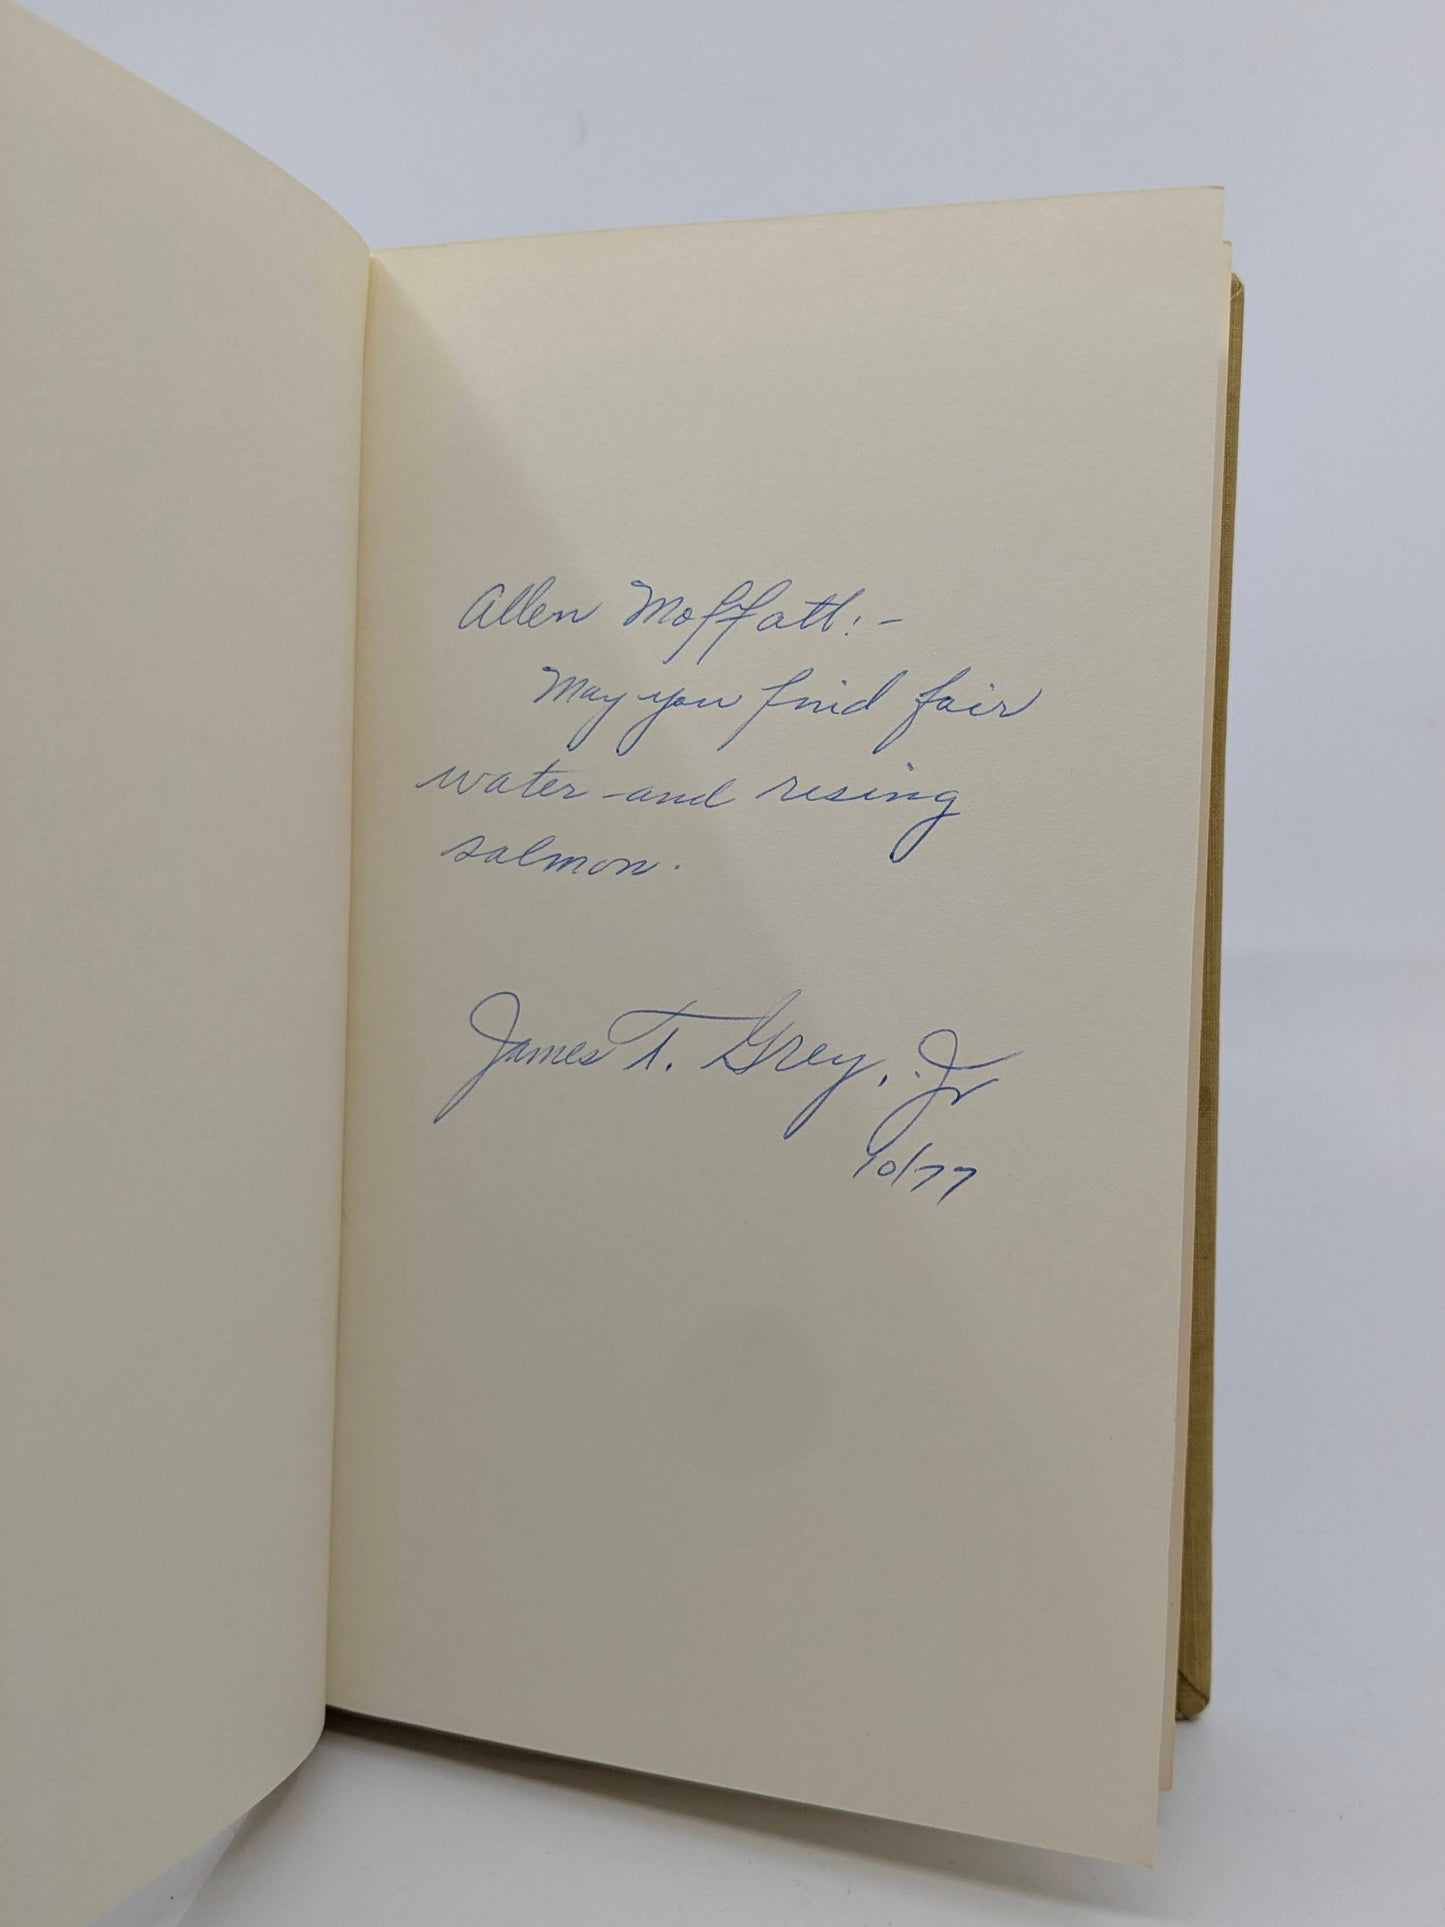 Allen Moffatt:-
May you find fair
water and rising
salmon.
James T. Grey, Jr
10/77